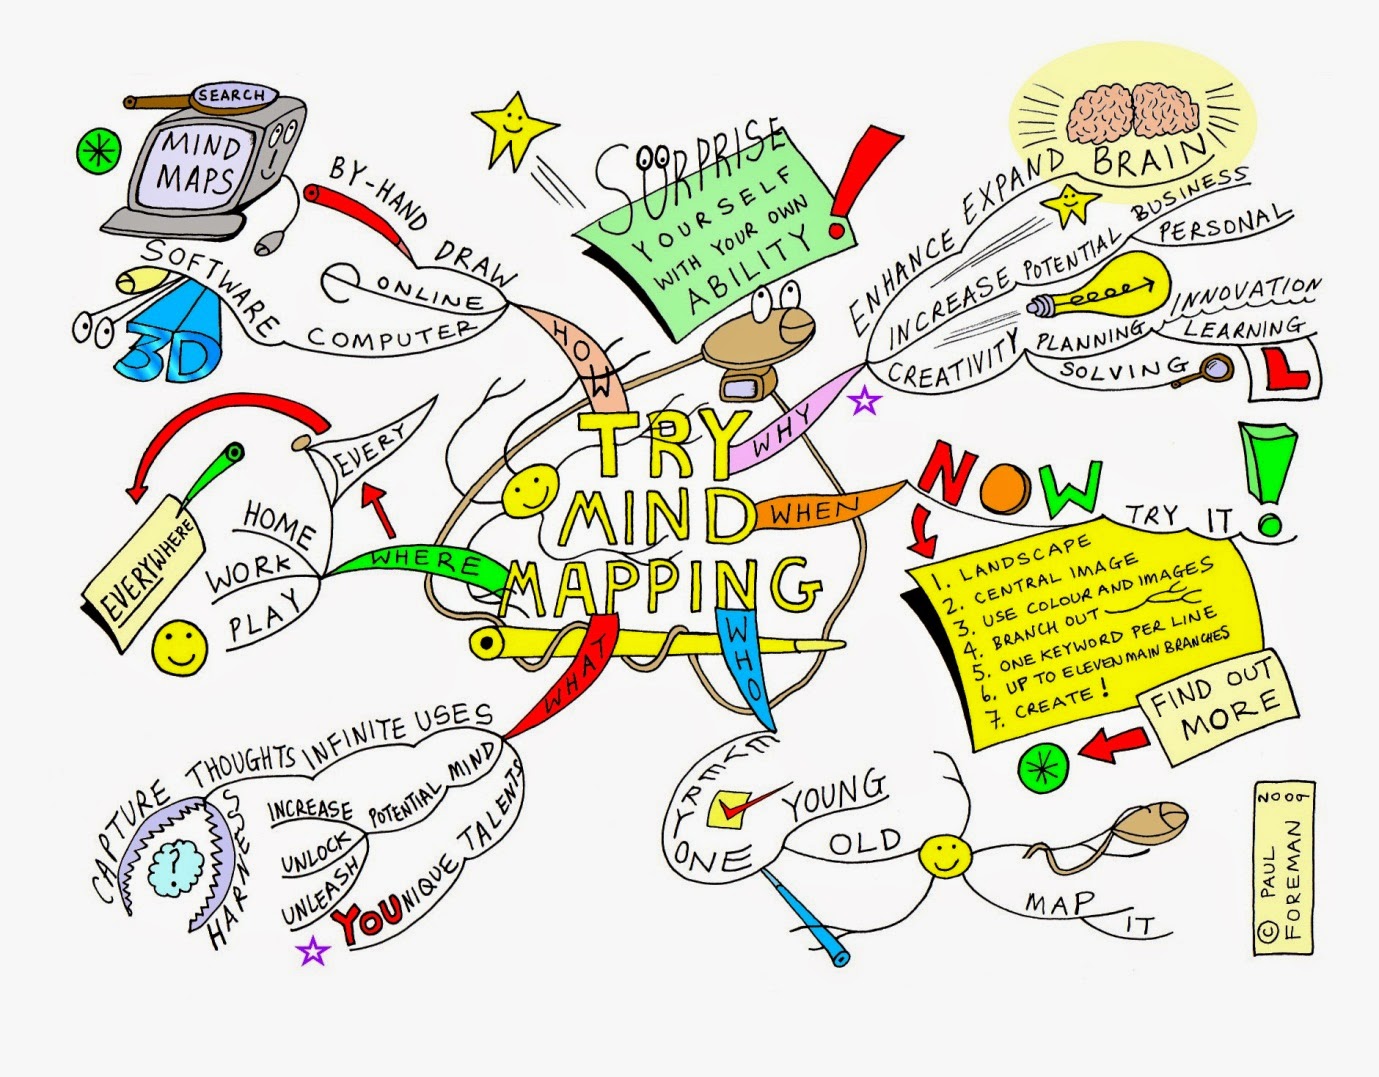 TRY
MIND
MAPPING
HOW
BY-HAND DRAW
ONLINE
COMPUTER
SOFTWARE
3D
SEARCH
MIND
MAPS
SURPRISE
YOURSELF
WITH YOUR OWN
ABILITY!
WHY
ENHANCE EXPAND BRAIN
INCREASE POTENTIAL
BUSINESS
PERSONAL
CREATIVITY
PLANNING
INNOVATION
LEARNING
L
SOLVING
WHEN
NOW
TRY IT!
1. LANDSCAPE
2. CENTRAL IMAGE
3. USE COLOUR AND IMAGES
4. BRANCH OUT
5. ONE KEYWORD PER LINE
6. UP TO ELEVEN MAIN BRANCHES
7. CREATE!
FIND OUT
MORE
WHO
EVERYONE
YOUNG
OLD
MAP
IT
WHAT
INFINITE USES
THOUGHTS
CAPTURE
HARNESS
?
MIND
POTENTIAL
INCREASE
UNLOCK
UNLEASH
TALENTS
YOUNIQUE
WHERE
EVERY
HOME
WORK
PLAY
EVERYWHERE
© PAUL
FOREMAN 2009